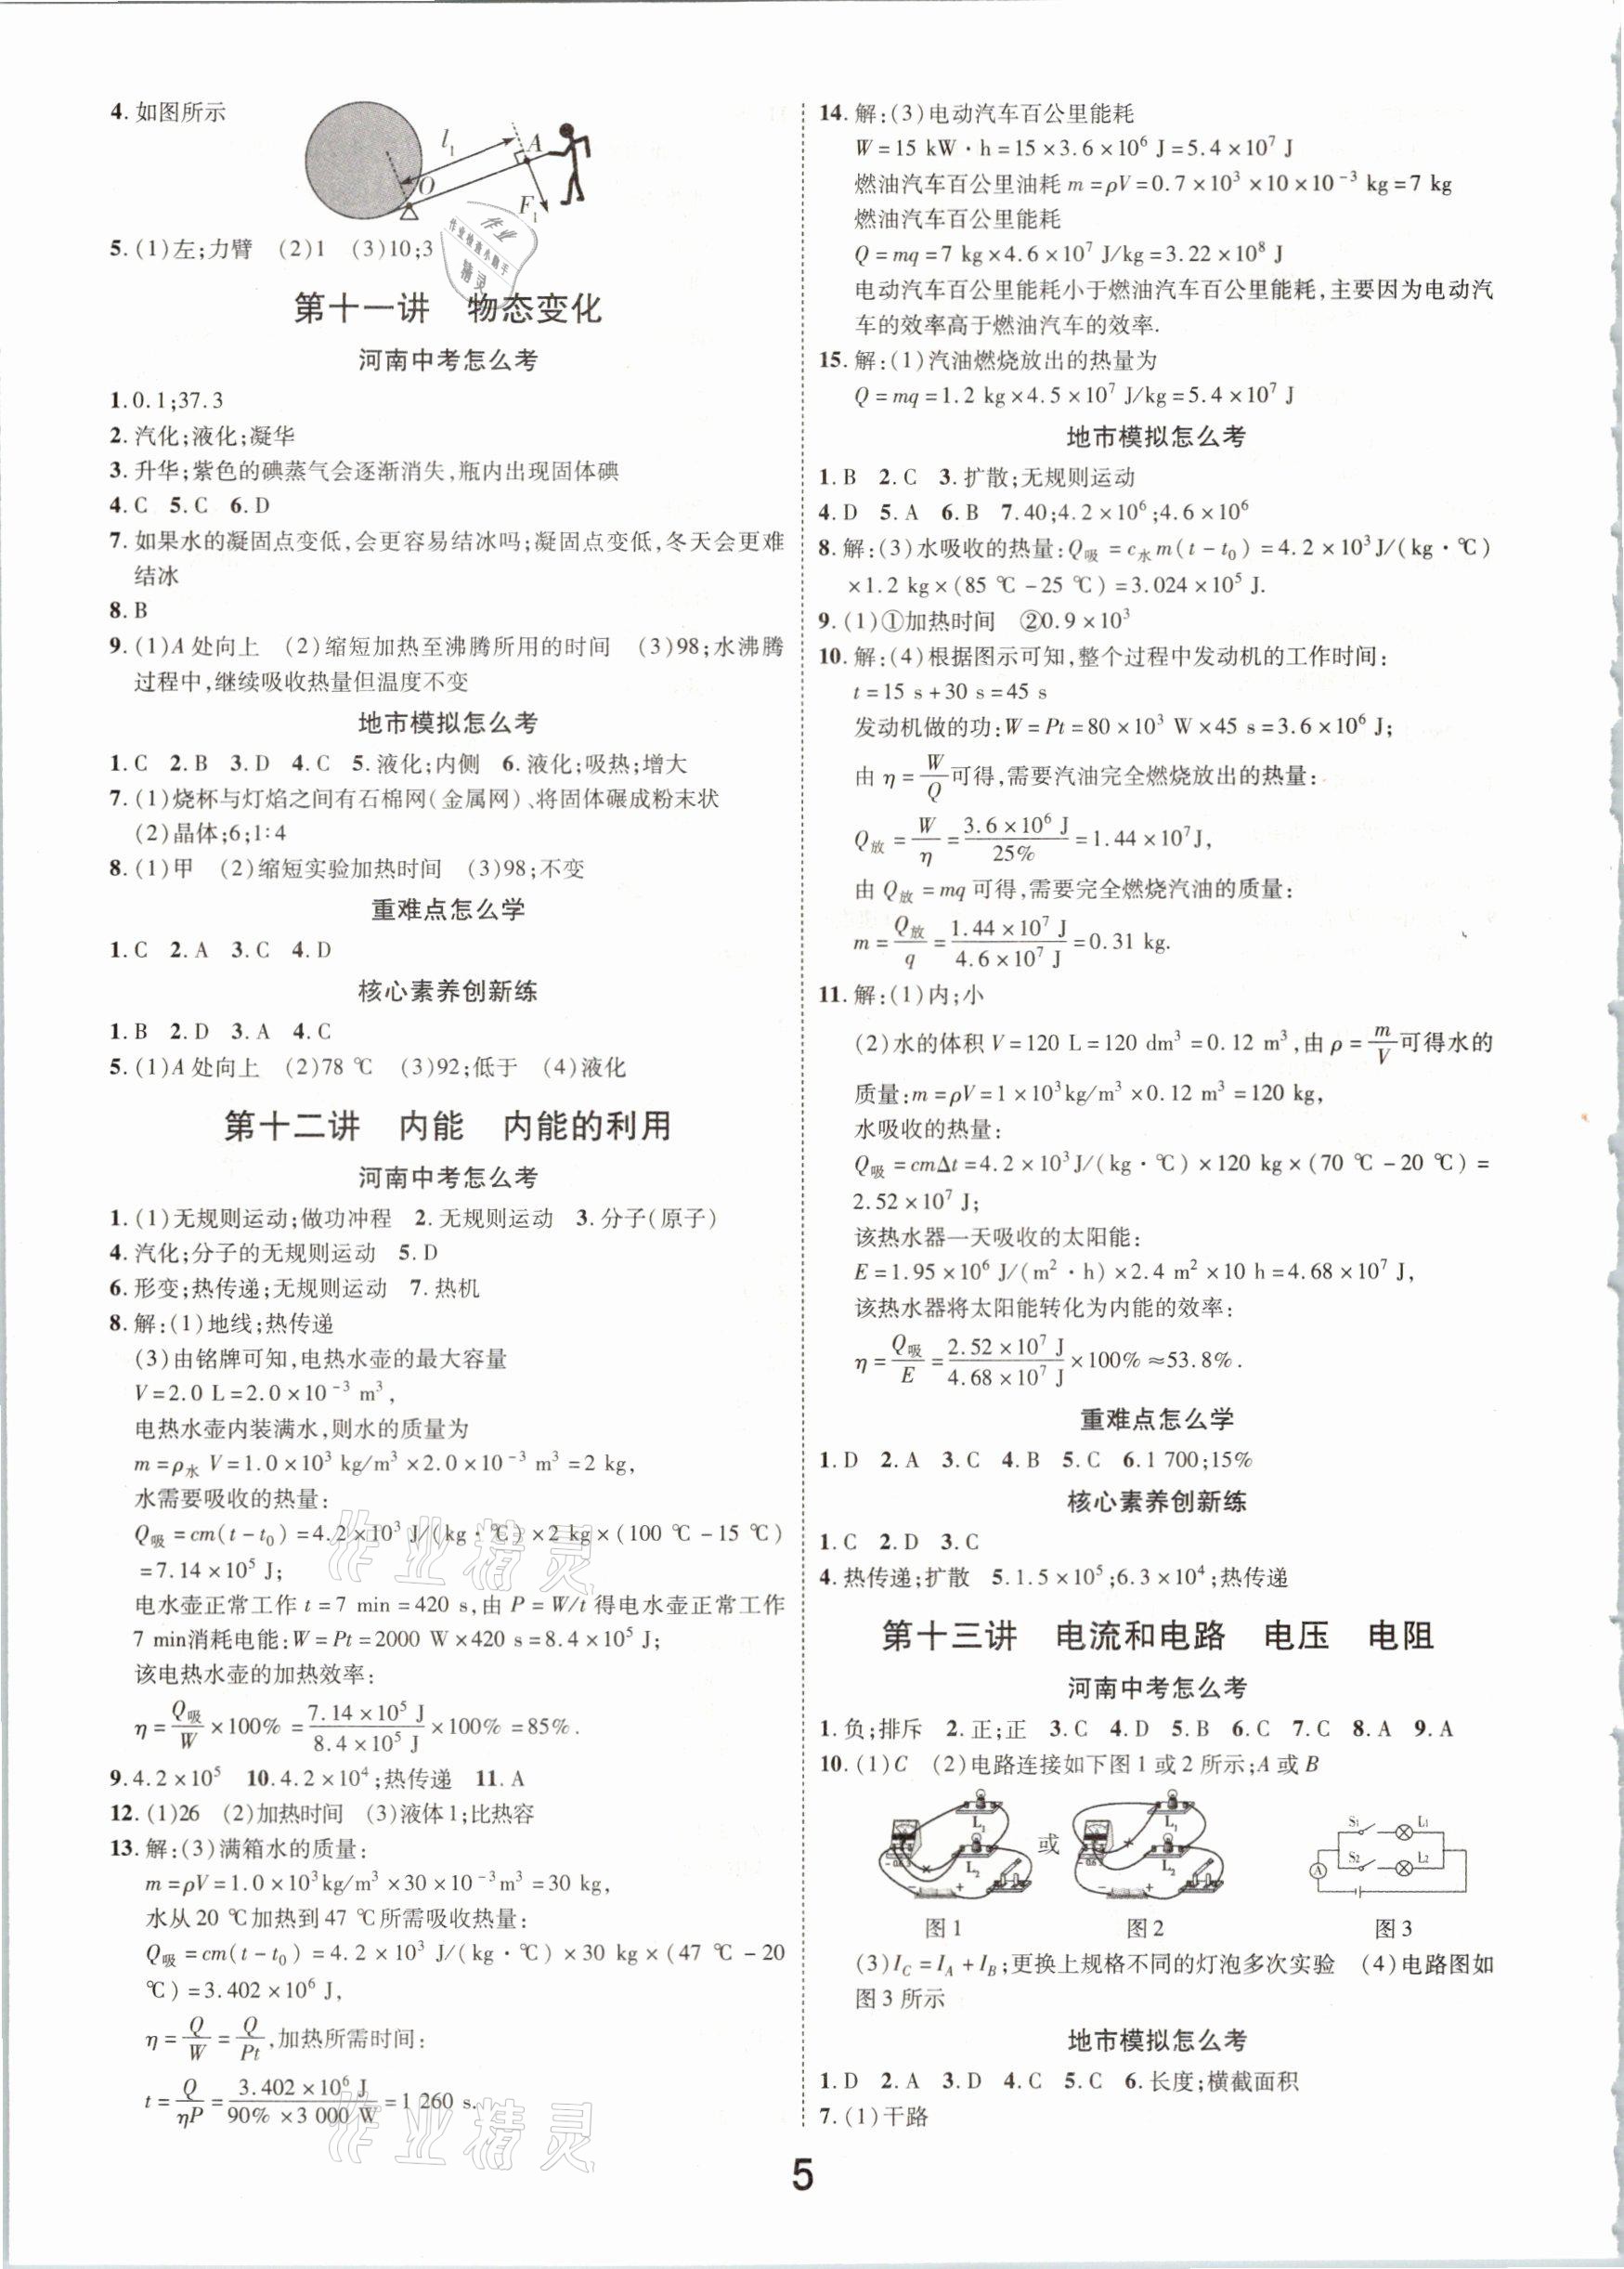 4.如图所示
l₁
A
O
F₁
5.(1)左;力臂 (2)1 (3)10;3
第十一讲 物态变化
河南中考怎么考
1.0.1;37.3
2.汽化;液化;凝华
3.升华;紫色的碘蒸气会逐渐消失,瓶内出现固体碘
4.C 5.C 6.D
7.如果水的凝固点变低,会更容易结冰吗;凝固点变低,冬天会更难
结冰
8.B
9.(1)A处向上 (2)缩短加热至沸腾所用的时间 (3)98;水沸腾
过程中,继续吸收热量但温度不变
地市模拟怎么考
1.C 2.B 3.D 4.C 5.液化;内侧 6.液化;吸热;增大
7.(1)烧杯与灯焰之间有石棉网(金属网)、将固体碾成粉末状
(2)晶体;6;1∶4
8.(1)甲 (2)缩短实验加热时间 (3)98;不变
重难点怎么学
1.C 2.A 3.C 4.D
核心素养创新练
1.B 2.D 3.A 4.C
5.(1)A处向上 (2)78 ℃ (3)92;低于 (4)液化
第十二讲 内能 内能的利用
河南中考怎么考
1.(1)无规则运动;做功冲程 2.无规则运动 3.分子(原子)
4.汽化;分子的无规则运动 5.D
6.形变;热传递;无规则运动 7.热机
8.解:(1)地线;热传递
(3)由铭牌可知,电热水壶的最大容量
V=2.0 L=2.0×10⁻³ m³,
电热水壶内装满水,则水的质量为
m=ρ水V=1.0×10³ kg/m³×2.0×10⁻³ m³=2 kg,
水需要吸收的热量:
Q吸=cm(t-t₀)=4.2×10³ J/(kg·℃)×2 kg×(100 ℃-15 ℃)
=7.14×10⁵ J;
电水壶正常工作t=7 min=420 s,由P=W/t得电水壶正常工作
7 min消耗电能:W=Pt=2000 W×420 s=8.4×10⁵ J;
该电热水壶的加热效率:
η=Q吸/W×100%=7.14×10⁵ J/8.4×10⁵ J×100%=85%.
9.4.2×10⁵ 10.4.2×10⁴;热传递 11.A
12.(1)26 (2)加热时间 (3)液体1;比热容
13.解:(3)满箱水的质量:
m=ρV=1.0×10³kg/m³×30×10⁻³m³=30 kg,
水从20 ℃加热到47 ℃所需吸收热量:
Q吸=cm(t-t₀)=4.2×10³ J/(kg·℃)×30 kg×(47 ℃-20
℃)=3.402×10⁶ J,
η=Q/W=Q/Pt,加热所需时间:
t=Q/ηP=3.402×10⁶ J/90%×3 000 W=1 260 s.
14.解:(3)电动汽车百公里能耗
W=15 kW·h=15×3.6×10⁶ J=5.4×10⁷ J
燃油汽车百公里油耗m=ρV=0.7×10³×10×10⁻³ kg=7 kg
燃油汽车百公里能耗
Q=mq=7 kg×4.6×10⁷ J/kg=3.22×10⁸ J
电动汽车百公里能耗小于燃油汽车百公里能耗,主要因为电动汽
车的效率高于燃油汽车的效率.
15.解:(1)汽油燃烧放出的热量为
Q=mq=1.2 kg×4.5×10⁷ J/kg=5.4×10⁷ J
地市模拟怎么考
1.B 2.C 3.扩散;无规则运动
4.D 5.A 6.B 7.40;4.2×10⁶;4.6×10⁶
8.解:(3)水吸收的热量:Q吸=c水m(t-t₀)=4.2×10³J/(kg·℃)
×1.2 kg×(85 ℃-25 ℃)=3.024×10⁵ J.
9.(1)①加热时间 ②0.9×10³
10.解:(4)根据图示可知,整个过程中发动机的工作时间:
t=15 s+30 s=45 s
发动机做的功:W=Pt=80×10³ W×45 s=3.6×10⁶ J;
由η=W/Q可得,需要汽油完全燃烧放出的热量:
Q放=W/η=3.6×10⁶ J/25%=1.44×10⁷J,
由Q放=mq可得,需要完全燃烧汽油的质量:
m=Q放/q=1.44×10⁷ J/4.6×10⁷ J=0.31 kg.
11.解:(1)内;小
(2)水的体积V=120 L=120 dm³=0.12 m³,由ρ=m/V可得水的
质量:m=ρV=1×10³kg/m³×0.12 m³=120 kg,
水吸收的热量:
Q吸=cmΔt=4.2×10³J/(kg·℃)×120 kg×(70 ℃-20 ℃)=
2.52×10⁷ J;
该热水器一天吸收的太阳能:
E=1.95×10⁶ J/(m²·h)×2.4 m²×10 h=4.68×10⁷ J,
该热水器将太阳能转化为内能的效率:
η=Q吸/E=2.52×10⁷ J/4.68×10⁷ J×100%≈53.8%.
重难点怎么学
1.D 2.A 3.C 4.B 5.C 6.1 700;15%
核心素养创新练
1.C 2.D 3.C
4.热传递;扩散 5.1.5×10⁵;6.3×10⁴;热传递
第十三讲 电流和电路 电压 电阻
河南中考怎么考
1.负;排斥 2.正;正 3.C 4.D 5.B 6.C 7.C 8.A 9.A
10.(1)C (2)电路连接如下图1或2所示;A或B
L₁ L₂ - +
或
L₁ L₂ - +
S₁ L₁ S₂ L₂ A
图1 图2 图3
(3)I_C=I_A+I_B;更换上规格不同的灯泡多次实验 (4)电路图如
图3所示
地市模拟怎么考
1.D 2.A 3.D 4.C 5.C 6.长度;横截面积
7.(1)干路
5
作业精灵
作业检查小助手
作业精灵
作业精灵